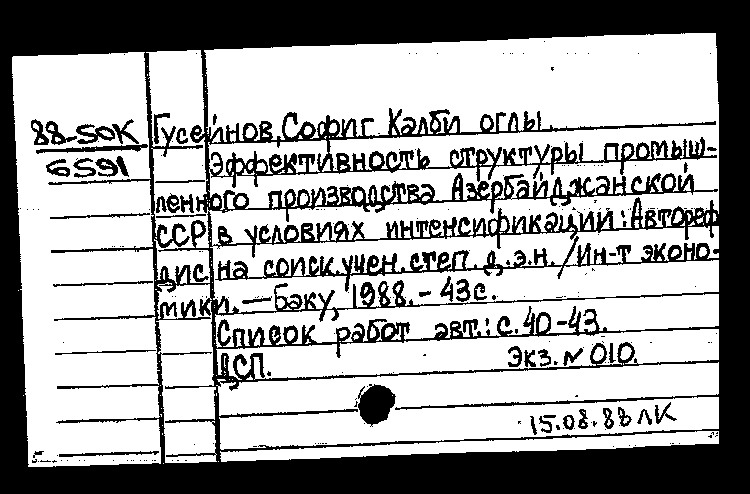 88-50К
6591
Гусейнов, Софиг Кэлби оглы.
Эффективность структуры промыш-
ленного производства Азербайджанской
ССР в условиях интенсификации: Автореф.
дис. на соиск. учен. степ. д.э.н. /Ин-т эконо-
мики. — Баку, 1988. - 43с.
Список работ авт.: с. 40-43.
ДСП. Экз. N 010.
15.08.88 ЛК